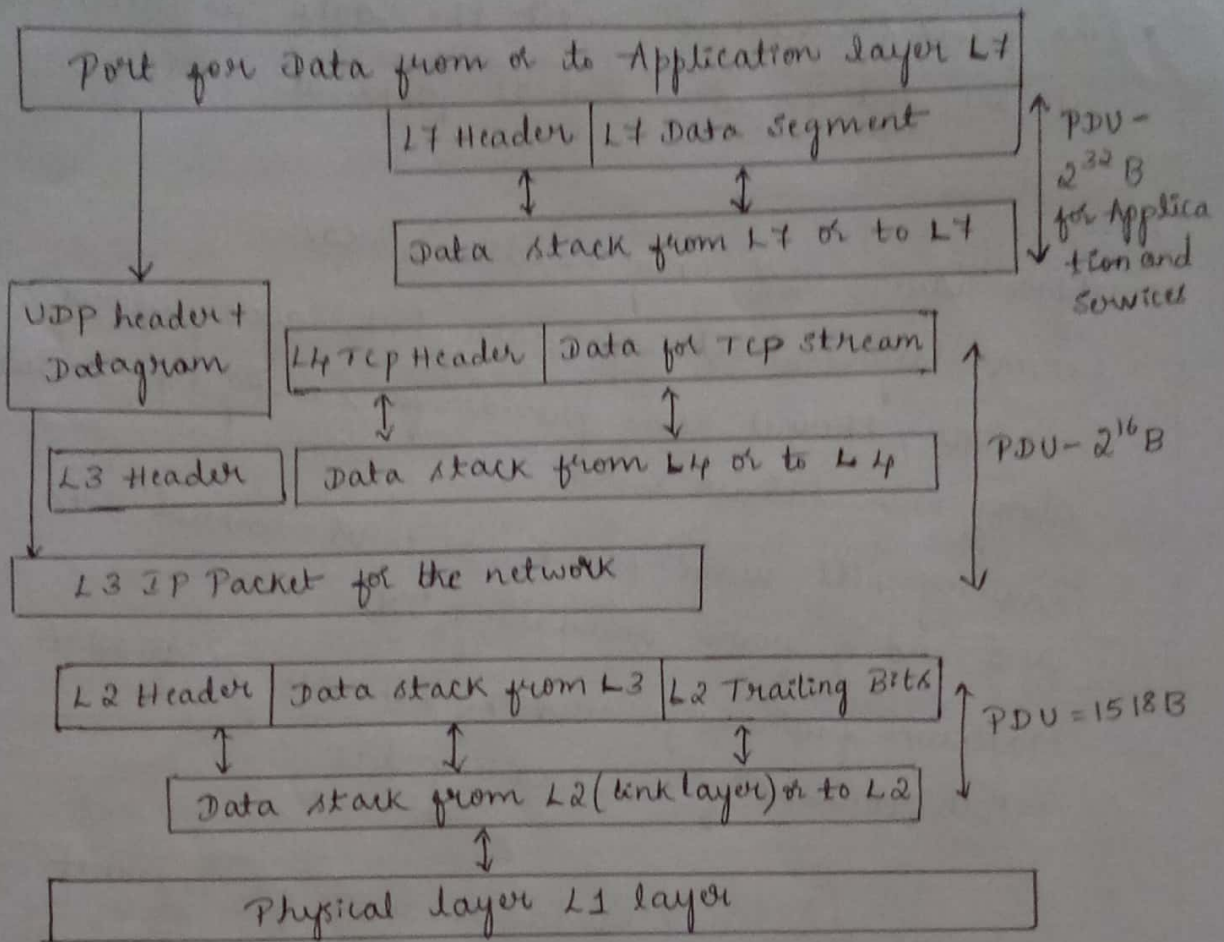 Port for Data from or to Application layer L7
L7 Header L7 Data Segment
Data stack from L7 or to L7
PDU-
2³² B
for Applica
tion and
Services
UDP header +
Datagram
L4 TCP Header Data for TCP stream
L3 Header Data stack from L4 or to L4
PDU- 2¹⁶ B
L3 IP Packet for the network
L2 Header Data stack from L3 L2 Trailing Bits
PDU = 1518B
Data stack from L2 (link layer) or to L2
Physical layer L1 layer